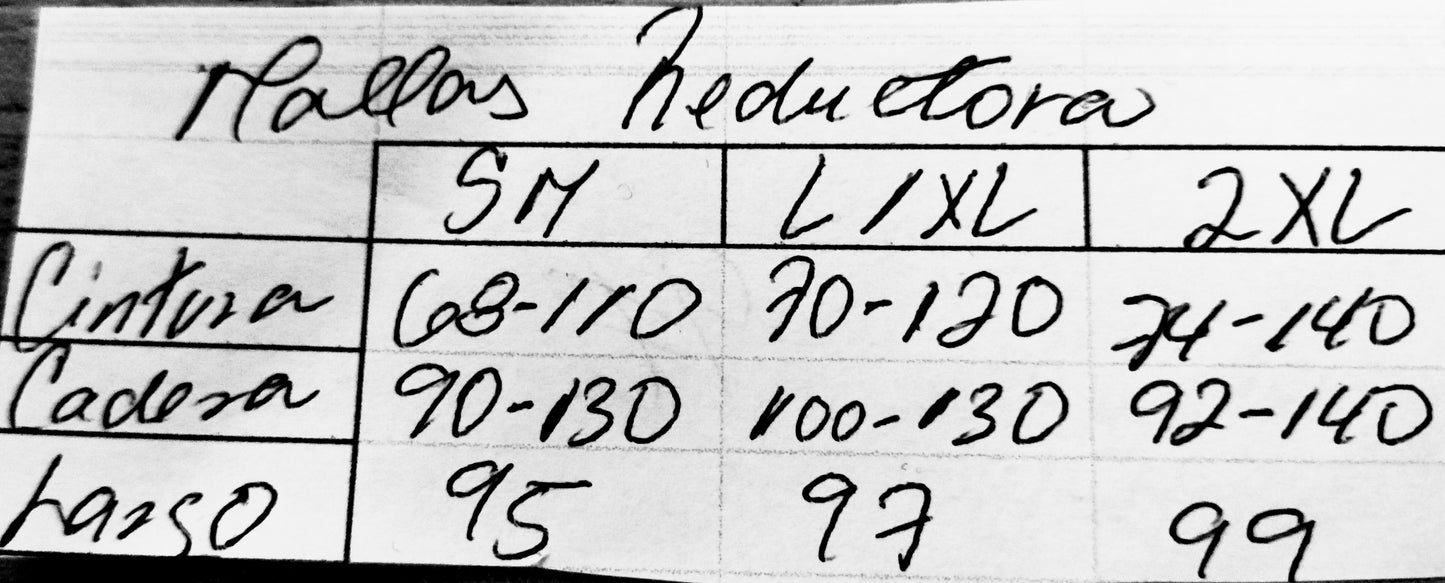 Mallas Reductora
SM L/XL 2XL
Cintura 68-110 70-120 74-140
Cadera 90-130 100-130 92-140
Largo 95 97 99